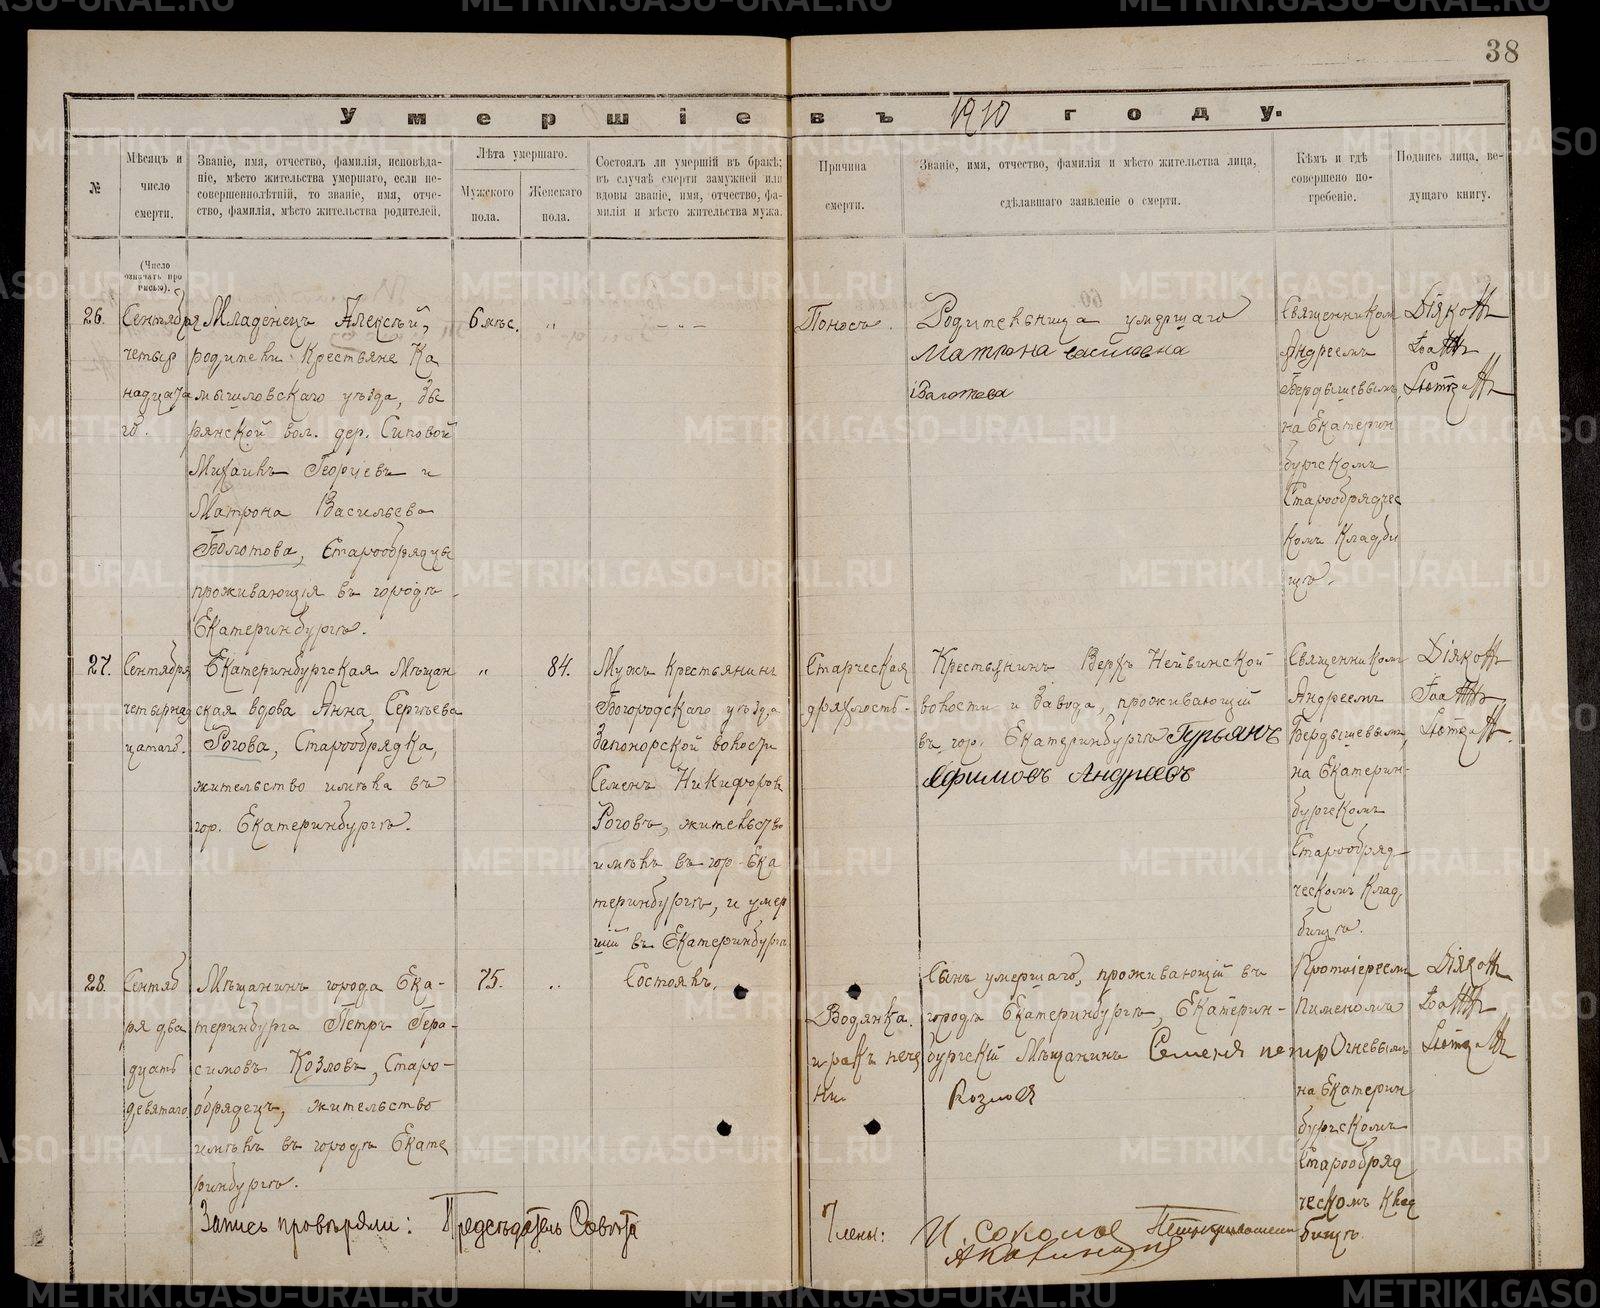 38
Умершіе въ 1910 году.
№
Мѣсяцъ и
число
смерти.
Званіе, имя, отчество, фамилія, исповѣда-
ніе, мѣсто жительства умершаго, если не-
совершеннолѣтній, то званіе, имя, отче-
ство, фамилія, мѣсто жительства родителей.
Лѣта умершаго.
Мужского
пола.
Женскаго
пола.
Состоялъ ли умершій въ бракѣ;
въ случаѣ смерти замужней или
вдовы званіе, имя, отчество, фа-
милія и мѣсто жительства мужа.
Причина
смерти.
Званіе, имя, отчество, фамилія и мѣсто жительства лица,
сдѣлавшаго заявленіе о смерти.
Кѣмъ и гдѣ
совершено по-
гребеніе.
Подпись лица, ве-
дущаго книгу.
(Число
означать про
писью).
26.
Сентября
четыр
надцата
го.
Младенецъ Алексѣй,
родители: Крестьяне Ка
мышловскаго уѣзда,
рянской вол. дер. Сиповой
Михаилъ Георгіевъ и
Матрона Васильева
Болотова, Старообрядцы
проживающія въ городѣ
Екатеринбургѣ.
6 мѣс.
"
- " -
Поносъ.
Родительница умершаго
Матрона
Священником
Андреемъ
Бердышевымъ,
на Екатерин
бургскомъ
Старообрядчес
комъ Кладби
щѣ.
27.
Сентября
четырнад
цатаго.
Екатеринбургская Мѣщан
ская вдова Анна Сергѣева
Рогова, Старообрядка,
жительство имѣла въ
гор. Екатеринбургѣ.
"
84.
Мужъ Крестьянинъ
Богородскаго уѣзда
Запонорской волости
Семенъ Никифоровъ
Роговъ, жительство
имѣлъ въ гор. Ека
теринбургѣ, и умер
шій въ Екатеринбургѣ
Старческая
дряхлость.
Крестьянинъ Верхъ Нейвинской
волости и Завода, проживающій
въ гор. Екатеринбургѣ Гурьянъ
Ефимовъ Андреевъ
Священникомъ
Андреемъ
Бердышевымъ,
на Екатерин-
бургскомъ
Старообряд-
ческомъ Клад
бищѣ.
28.
Сентяб
ря два
дцать
девятаго
Мѣщанинъ города Ека-
теринбурга Петръ Гера-
симовъ Козловъ, Старо-
обрядецъ, жительство
имѣлъ въ городѣ Екате
ринбургѣ.
75.
"
Состоялъ.
Водянка.
и ракъ пече
ни.
Сынъ умершаго, проживающій въ
городѣ Екатеринбургѣ, Екатерин-
бургскій Мѣщанинъ Семеня петр
Козлов
Протоіереемъ
Пименомъ
Огневымъ
на Екатерин
бургскомъ
Старообряд
ческомъ Клад
бищѣ.
Запись провѣряли: Предсѣдатель Совѣта
Члены: И. соколов
METRIKI.GASO-URAL.RU